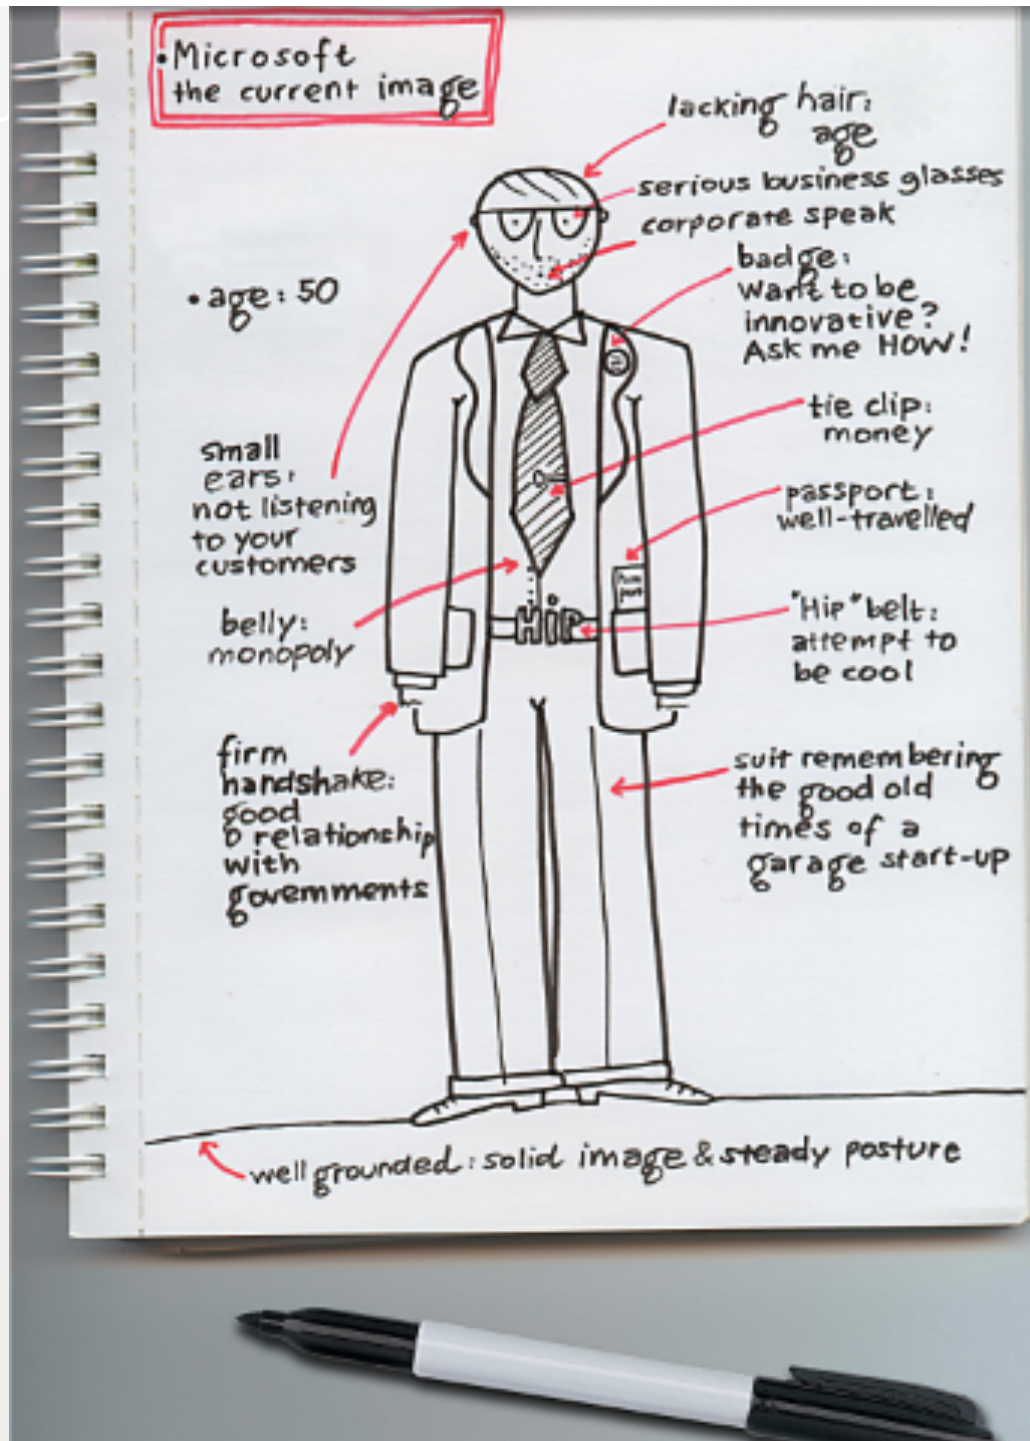 • Microsoft
the current image
lacking hair:
age
serious business glasses
corporate speak
badge:
want to be
innovative?
Ask me HOW!
• age: 50
tie clip:
money
small
ears:
not listening
to your
customers
passport:
well-travelled
belly:
monopoly
HiP
"Hip" belt:
attempt to
be cool
firm
handshake:
good
relationship
with
governments
suit remembering
the good old
times of a
garage start-up
well grounded: solid image & steady posture